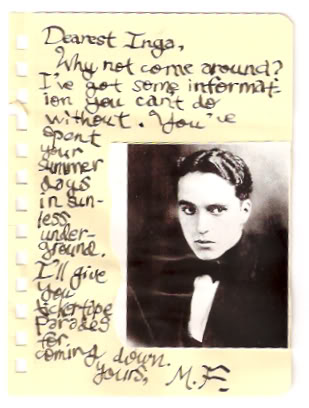 Dearest Inga,
Why not come around?
I've got some informat-
ion you can't do
without. You've
spent
your
summer
days
in sun-
less
under-
ground.
I'll give
you
tickertape
Parades
for
coming down.
yours, M.F